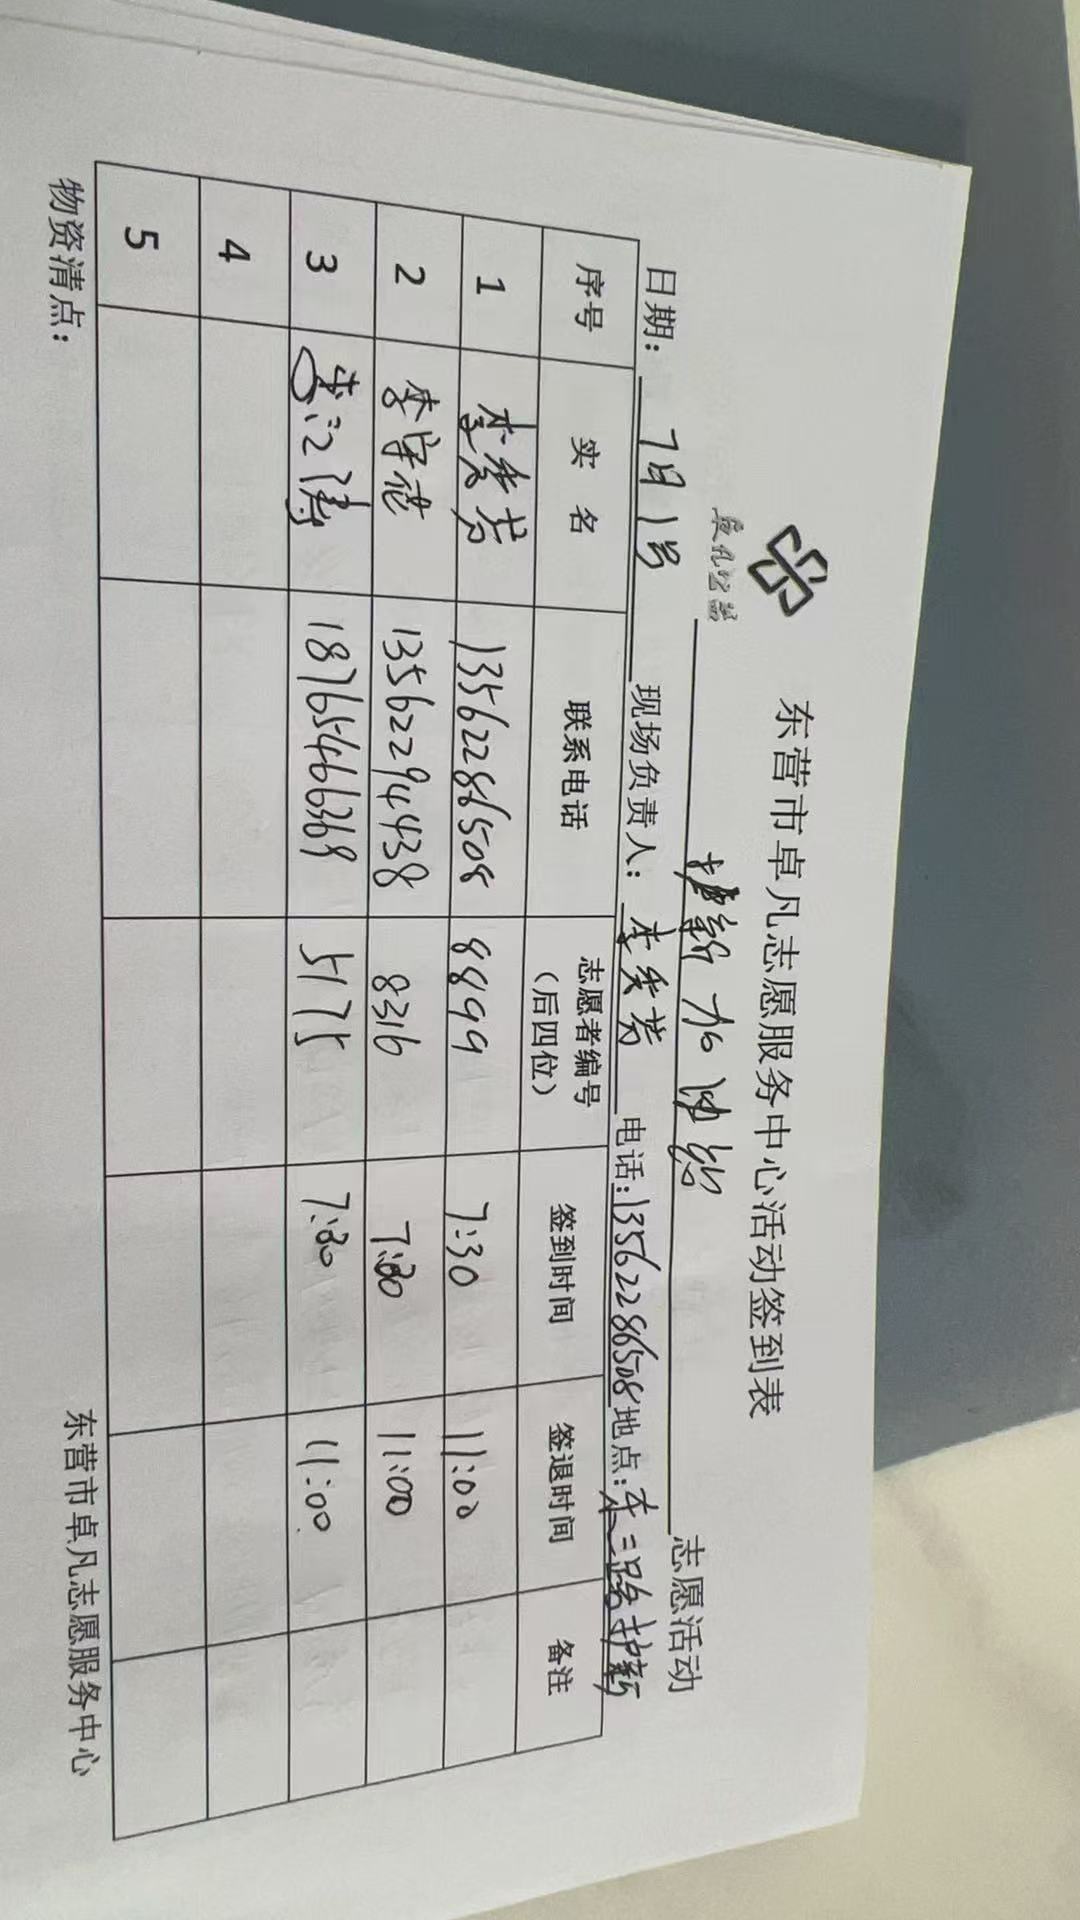 东营市卓凡志愿服务中心活动签到表
卓凡公益
护新加油站 志愿活动
日期：7月1号 现场负责人：李秀芳 电话：13562286508 地点：东二路护新
序号 实名 联系电话 志愿者编号（后四位） 签到时间 签退时间 备注
1 李秀芳 13562286508 8899 7:30 11:00
2 李宋 13562294438 8316 7:30 11:00
3 李江涛 18765466369 5175 7:30 11:00
4
5
物资清点：
东营市卓凡志愿服务中心